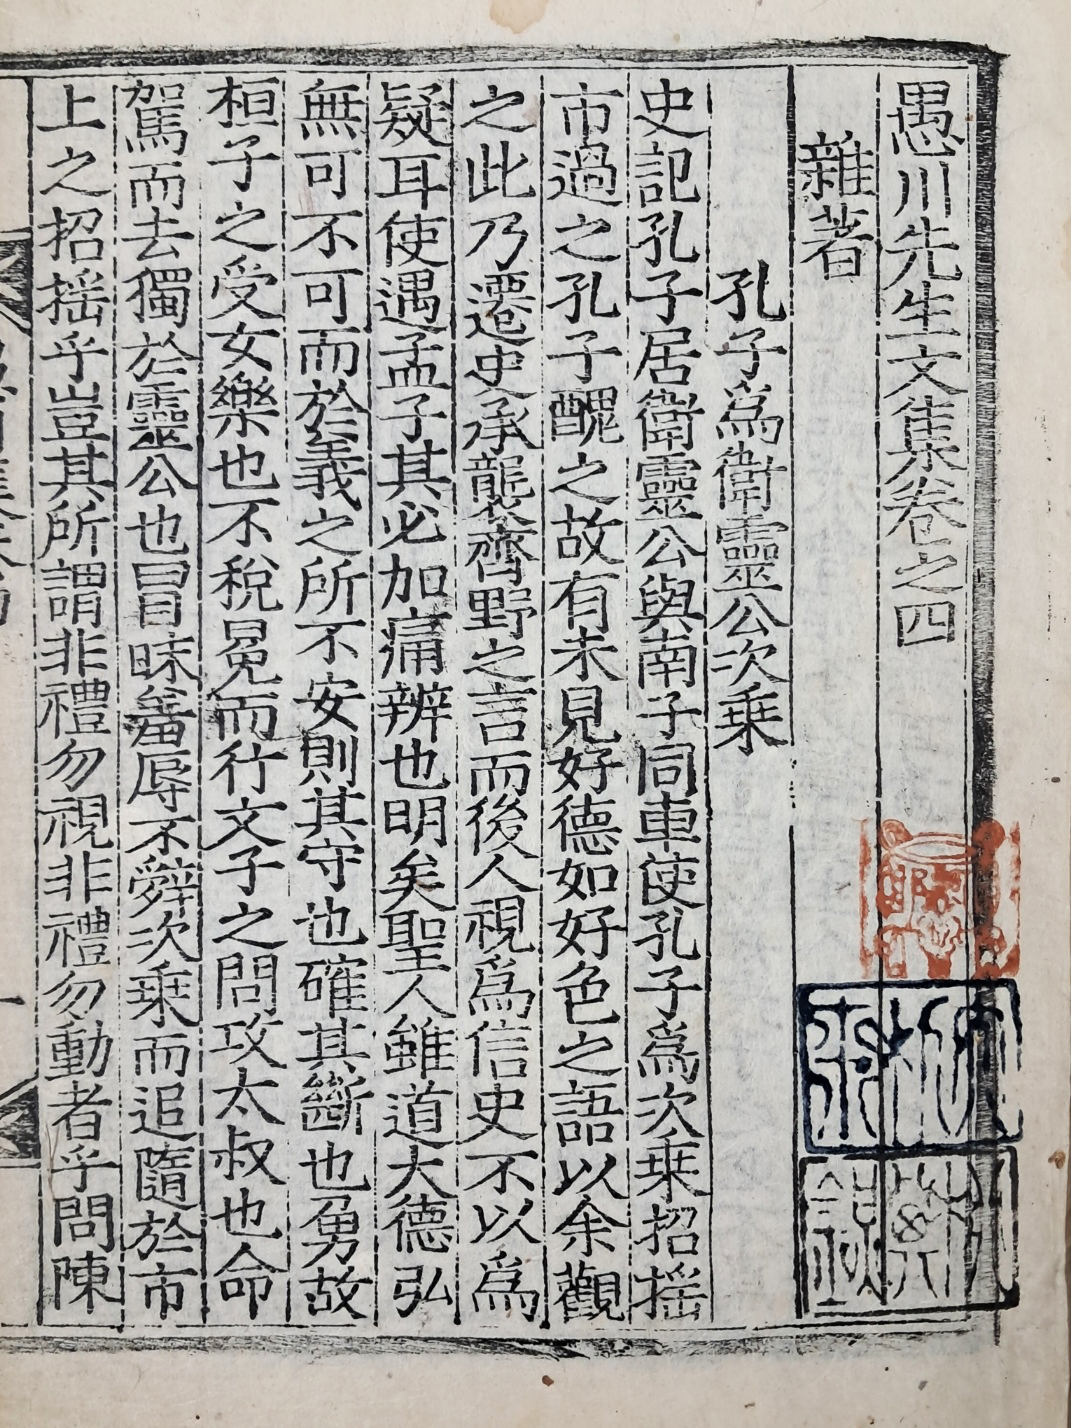 愚川先生文集卷之四
雜著
孔子爲衛靈公次乗
史記孔子居衛靈公與南子同車使孔子爲次乗招搖
市過之孔子醜之故有未見好德如好色之語以余觀
之此乃遷史承襲齊野之言而後人視爲信史不以爲
疑耳使遇孟子其必加痛辨也明矣聖人雖道大德弘
無可不可而於義之所不安則其守也確其斷也勇故
桓子之受女樂也不稅冕而行文子之問攻太叔也命
駕而去獨於靈公也冒昧羞辱不辭次乗而追隨於市
上之招搖乎豈其所謂非禮勿視非禮勿動者乎問陳